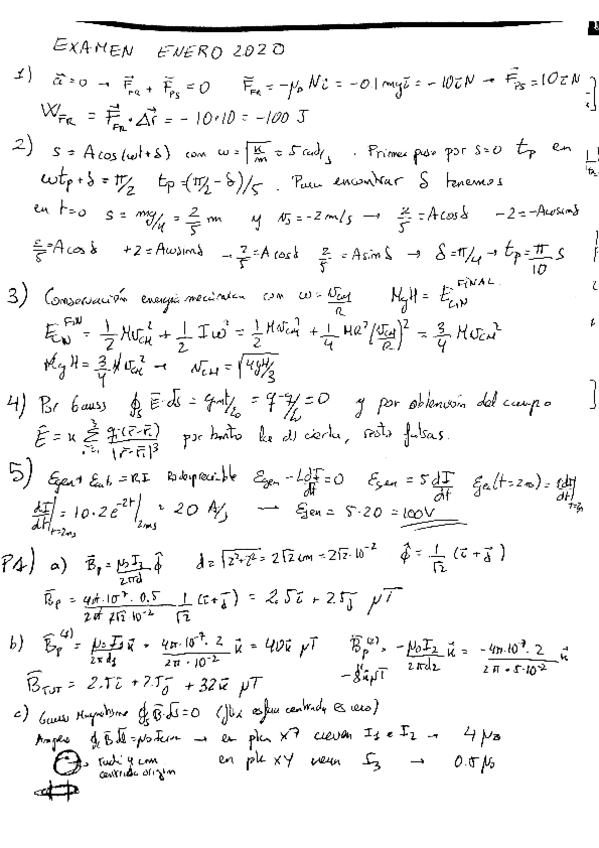 EXAMEN ENERO 2020
1) a⃗=0 → F⃗_FR + F⃗_PS = 0 F⃗_FR = -μ_D N i⃗ = -0'1 mg i⃗ = -10 i⃗ N → F⃗_PS = 10 i⃗ N
W_FR = F⃗_FR · Δr⃗ = -10·10 = -100 J
2) s = A cos(ωt+δ) con ω = √(k/m) = 5 rad/s. Primer paso por s=0 t_p en
ωt_p + δ = π/2 t_p = (π/2 - δ)/5. Para encontrar δ tenemos
en t=0 s = mg/k = 2/5 m y v_s = -2 m/s → 2/5 = A cos δ -2 = -Aω sin δ
2/5 = A cos δ +2 = Aω sin δ 2/5 = A cos δ 2/5 = A sin δ → δ = π/4 → t_p = π/10 s
3) Conservación energía mecánica con ω = v_CM/R MgH = E_CIN^FINAL
E_CIN^FIN = 1/2 M v_CM² + 1/2 I ω² = 1/2 M v_CM² + 1/4 MR² (v_CM/R)² = 3/4 M v_CM²
MgH = 3/4 M v_CM² → v_CM = √(4gH/3)
4) Por Gauss ∮_S E⃗·ds⃗ = q_int/ε₀ = (q-q)/ε₀ = 0 y por obtención del campo
E⃗ = k Σ q_i(r⃗-r⃗_i)/|r⃗-r⃗_i|³ por tanto la d) cierta, resto falsas.
5) ε_gen + ε_aut = RI R despreciable ε_gen - L dI/dt = 0 ε_gen = 5 dI/dt
dI/dt|_t=2ms = 10·2 e^-2t|_2ms = 20 A/s → ε_gen = 5·20 = 100V
P1) a) B⃗_P = μ₀I₃/2πd φ̂ d = √(2²+2²) = 2√2 cm = 2√2·10⁻² φ̂ = 1/√2 (i⃗ + j⃗)
B⃗_P = 4π·10⁻⁷·0.5/2π 2√2·10⁻² 1/√2 (i⃗ + j⃗) = 2.5 i⃗ + 2.5 j⃗ μT
b) B⃗_P^(1) = μ₀I₁/2πd₁ k⃗ = 4π·10⁻⁷·2/2π·10⁻² k⃗ = 40 k⃗ μT B⃗_P^(2) = -μ₀I₂/2πd₂ k⃗ = -4π·10⁻⁷·2/2π·5·10⁻² k⃗
-8 k⃗ μT
B⃗_TOT = 2.5 i⃗ + 2.5 j⃗ + 32 k⃗ μT
c) Gauss Magnetismo ∮_S B⃗·ds⃗ = 0 (flux esfera centrada es cero)
Ampere ∮ B⃗ dl⃗ = μ₀ → en plan XZ I₁ e I₂ → 4 μ₀
radi y cm
centrada origin
en pla XY I₃ → 0.5 μ₀